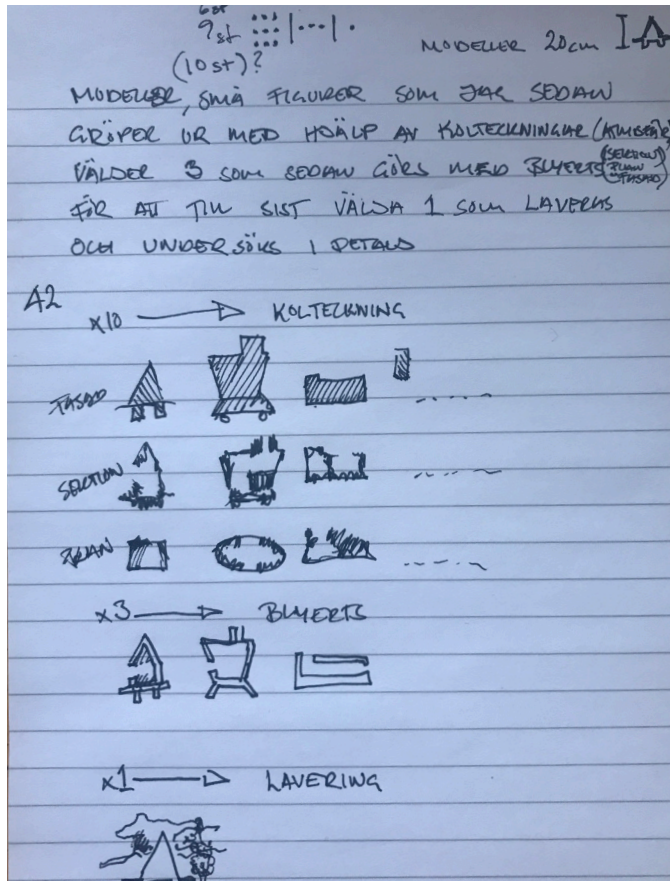 6st
9st
(10st)?
MODELLER 20cm
MODELLER, SMÅ FIGURER SOM JAG SEDAN
GRÖPER UR MED HJÄLP AV KOLTECKNINGAR (ATMOSFÄR)
VÄLJER 3 SOM SEDAN GÖRS MED BLYERTS (SEKTION PLAN FASAD)
FÖR ATT TILL SIST VÄLJA 1 SOM LAVERAS
OCH UNDERSÖKS I DETALJ
A2
x10 KOLTECKNING
FASAD
SEKTION
PLAN
x3 BLYERTS
x1 LAVERING